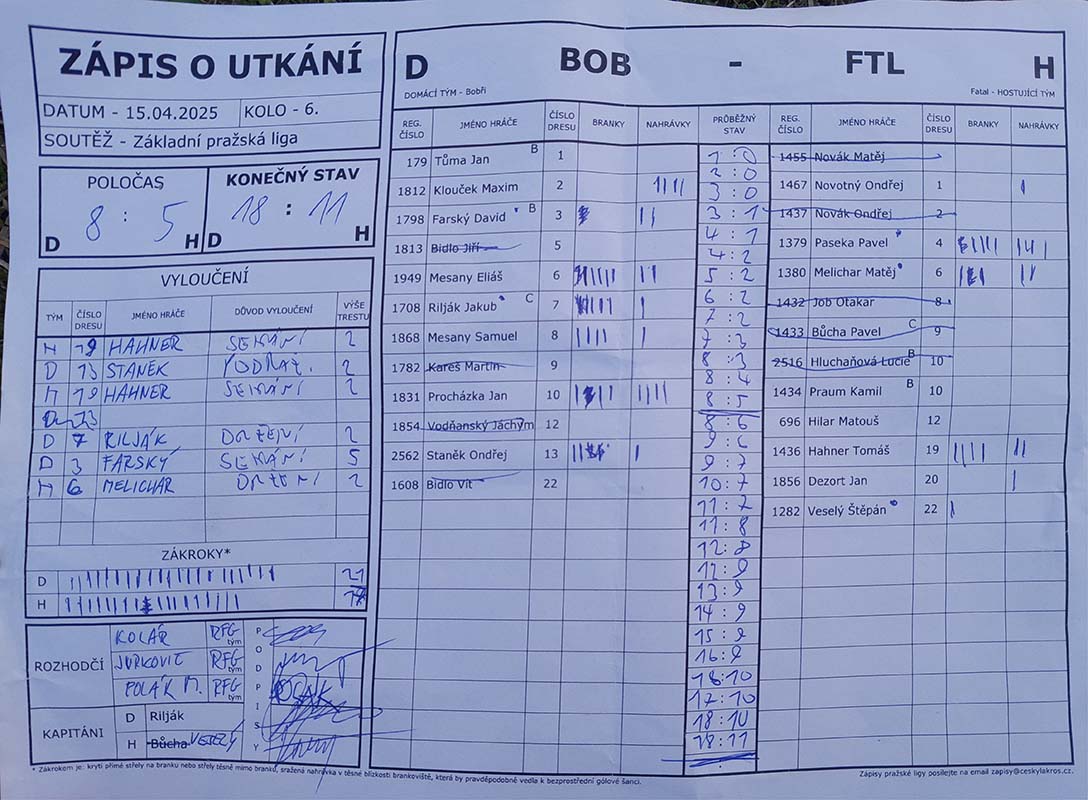 ZÁPIS O UTKÁNÍ
DATUM - 15.04.2025 KOLO - 6.
SOUTĚŽ - Základní pražská liga
POLOČAS KONEČNÝ STAV
8 : 5 18 : 11
D H D H
VYLOUČENÍ
TÝM ČÍSLO DRESU JMÉNO HRÁČE DŮVOD VYLOUČENÍ VÝŠE TRESTU
H 19 HAHNER SEKÁNÍ 2
D 13 STANĚK PODRAŽ. 2
H 19 HAHNER SEKÁNÍ 2
D 7 RILJÁK DRŽENÍ 2
D 3 FARSKÝ SEKÁNÍ 5
H 6 MELICHAR DRŽENÍ 2
ZÁKROKY*
D 21
H
ROZHODČÍ
KOLÁŘ RFG tým
JURKOVIC RFG tým
POLÁK M. RFG tým
PODPISY
KAPITÁNI
D Rilják
H Bůcha VESELÝ
D BOB - FTL H
DOMÁCÍ TÝM - Bobři Fatal - HOSTUJÍCÍ TÝM
REG. ČÍSLO JMÉNO HRÁČE ČÍSLO DRESU BRANKY NAHRÁVKY PRŮBĚŽNÝ STAV REG. ČÍSLO JMÉNO HRÁČE ČÍSLO DRESU BRANKY NAHRÁVKY
179 Tůma Jan B 1
1812 Klouček Maxim 2 IIII
1798 Farský David B 3 II
1813 Bidlo Jiří 5
1949 Mesany Eliáš 6 II
1708 Rilják Jakub C 7 I
1868 Mesany Samuel 8 IIII I
1782 Kareš Martin 9
1831 Procházka Jan 10 IIII
1854 Vodňanský Jáchym 12
2562 Staněk Ondřej 13 I
1608 Bidlo Vít 22
1 : 0
2 : 0
3 : 0
3 : 1
4 : 1
4 : 2
5 : 2
6 : 2
7 : 2
7 : 3
8 : 3
8 : 4
8 : 5
8 : 6
9 : 6
9 : 7
10 : 7
11 : 7
11 : 8
12 : 8
12 : 9
13 : 9
14 : 9
15 : 9
16 : 9
16 : 10
17 : 10
18 : 10
18 : 11
1455 Novák Matěj
1467 Novotný Ondřej 1 I
1437 Novák Ondřej 2
1379 Paseka Pavel 4 III
1380 Melichar Matěj 6 II
1432 Job Otakar 8
1433 Bůcha Pavel C 9
2516 Hluchaňová Lucie B 10
1434 Praum Kamil B 10
696 Hilar Matouš 12
1436 Hahner Tomáš 19 IIII II
1856 Dezort Jan 20 I
1282 Veselý Štěpán 22 I
* Zákrokem je: krytí přímé střely na branku nebo střely těsně mimo branku, sražená nahrávka v těsné blízkosti brankoviště, která by pravděpodobně vedla k bezprostřední gólové šanci.
Zápisy pražské ligy posílejte na email zapisy@ceskylakros.cz.